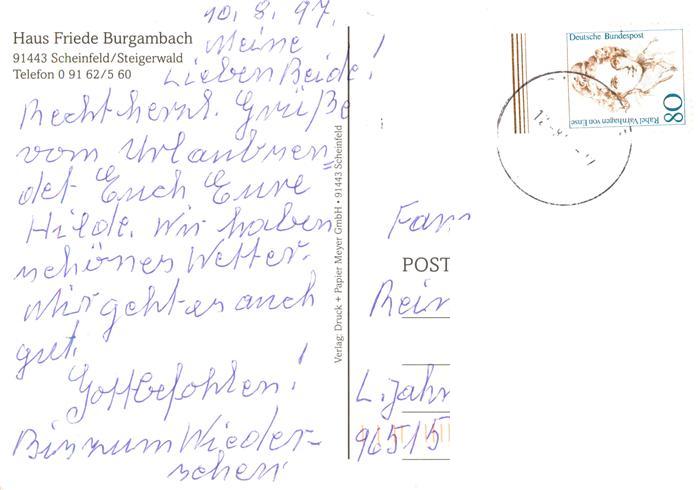 Haus Friede Burgambach
91443 Scheinfeld/Steigerwald
Telefon 0 91 62/5 60
10. 8. 97.
Meine
Lieben Beide!
Recht herzl. Grüße
vom Urlaub sen=
det Euch Eure
Hilde. Wir haben
schönes Wetter.
Mir geht es auch
gut.
Gott befohlen!
Bis zum Wieder-
sehen
Verlag: Druck + Papier Meyer GmbH • 91443 Scheinfeld
Deutsche Bundespost
80
Rahel Varnhagen von Ense
Fam
POST
Rein
L. Jahn
96515